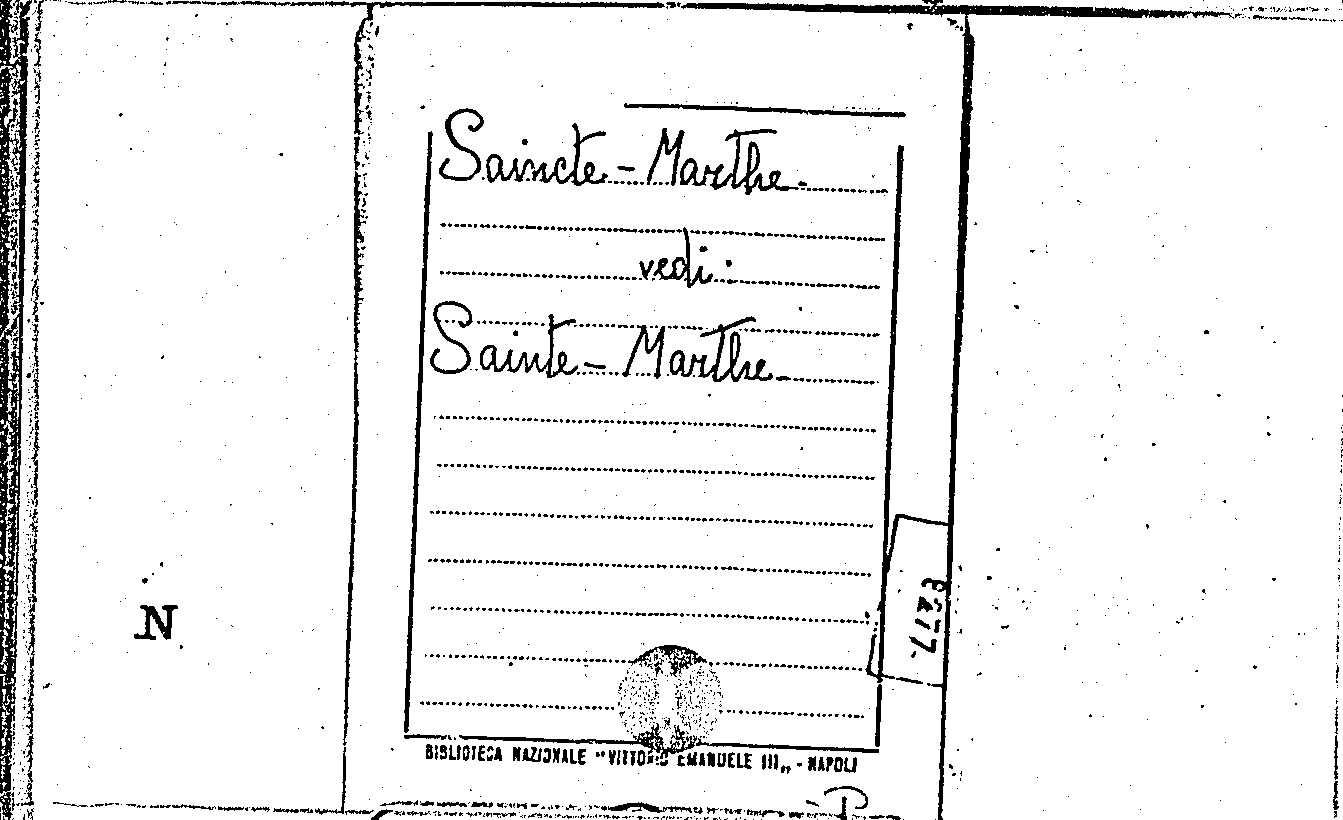 Saincte-Marthe-
vedi:
Sainte-Marthe-
N
BIBLIOTECA NAZIONALE "VITTORIO EMANUELE III„ - NAPOLI